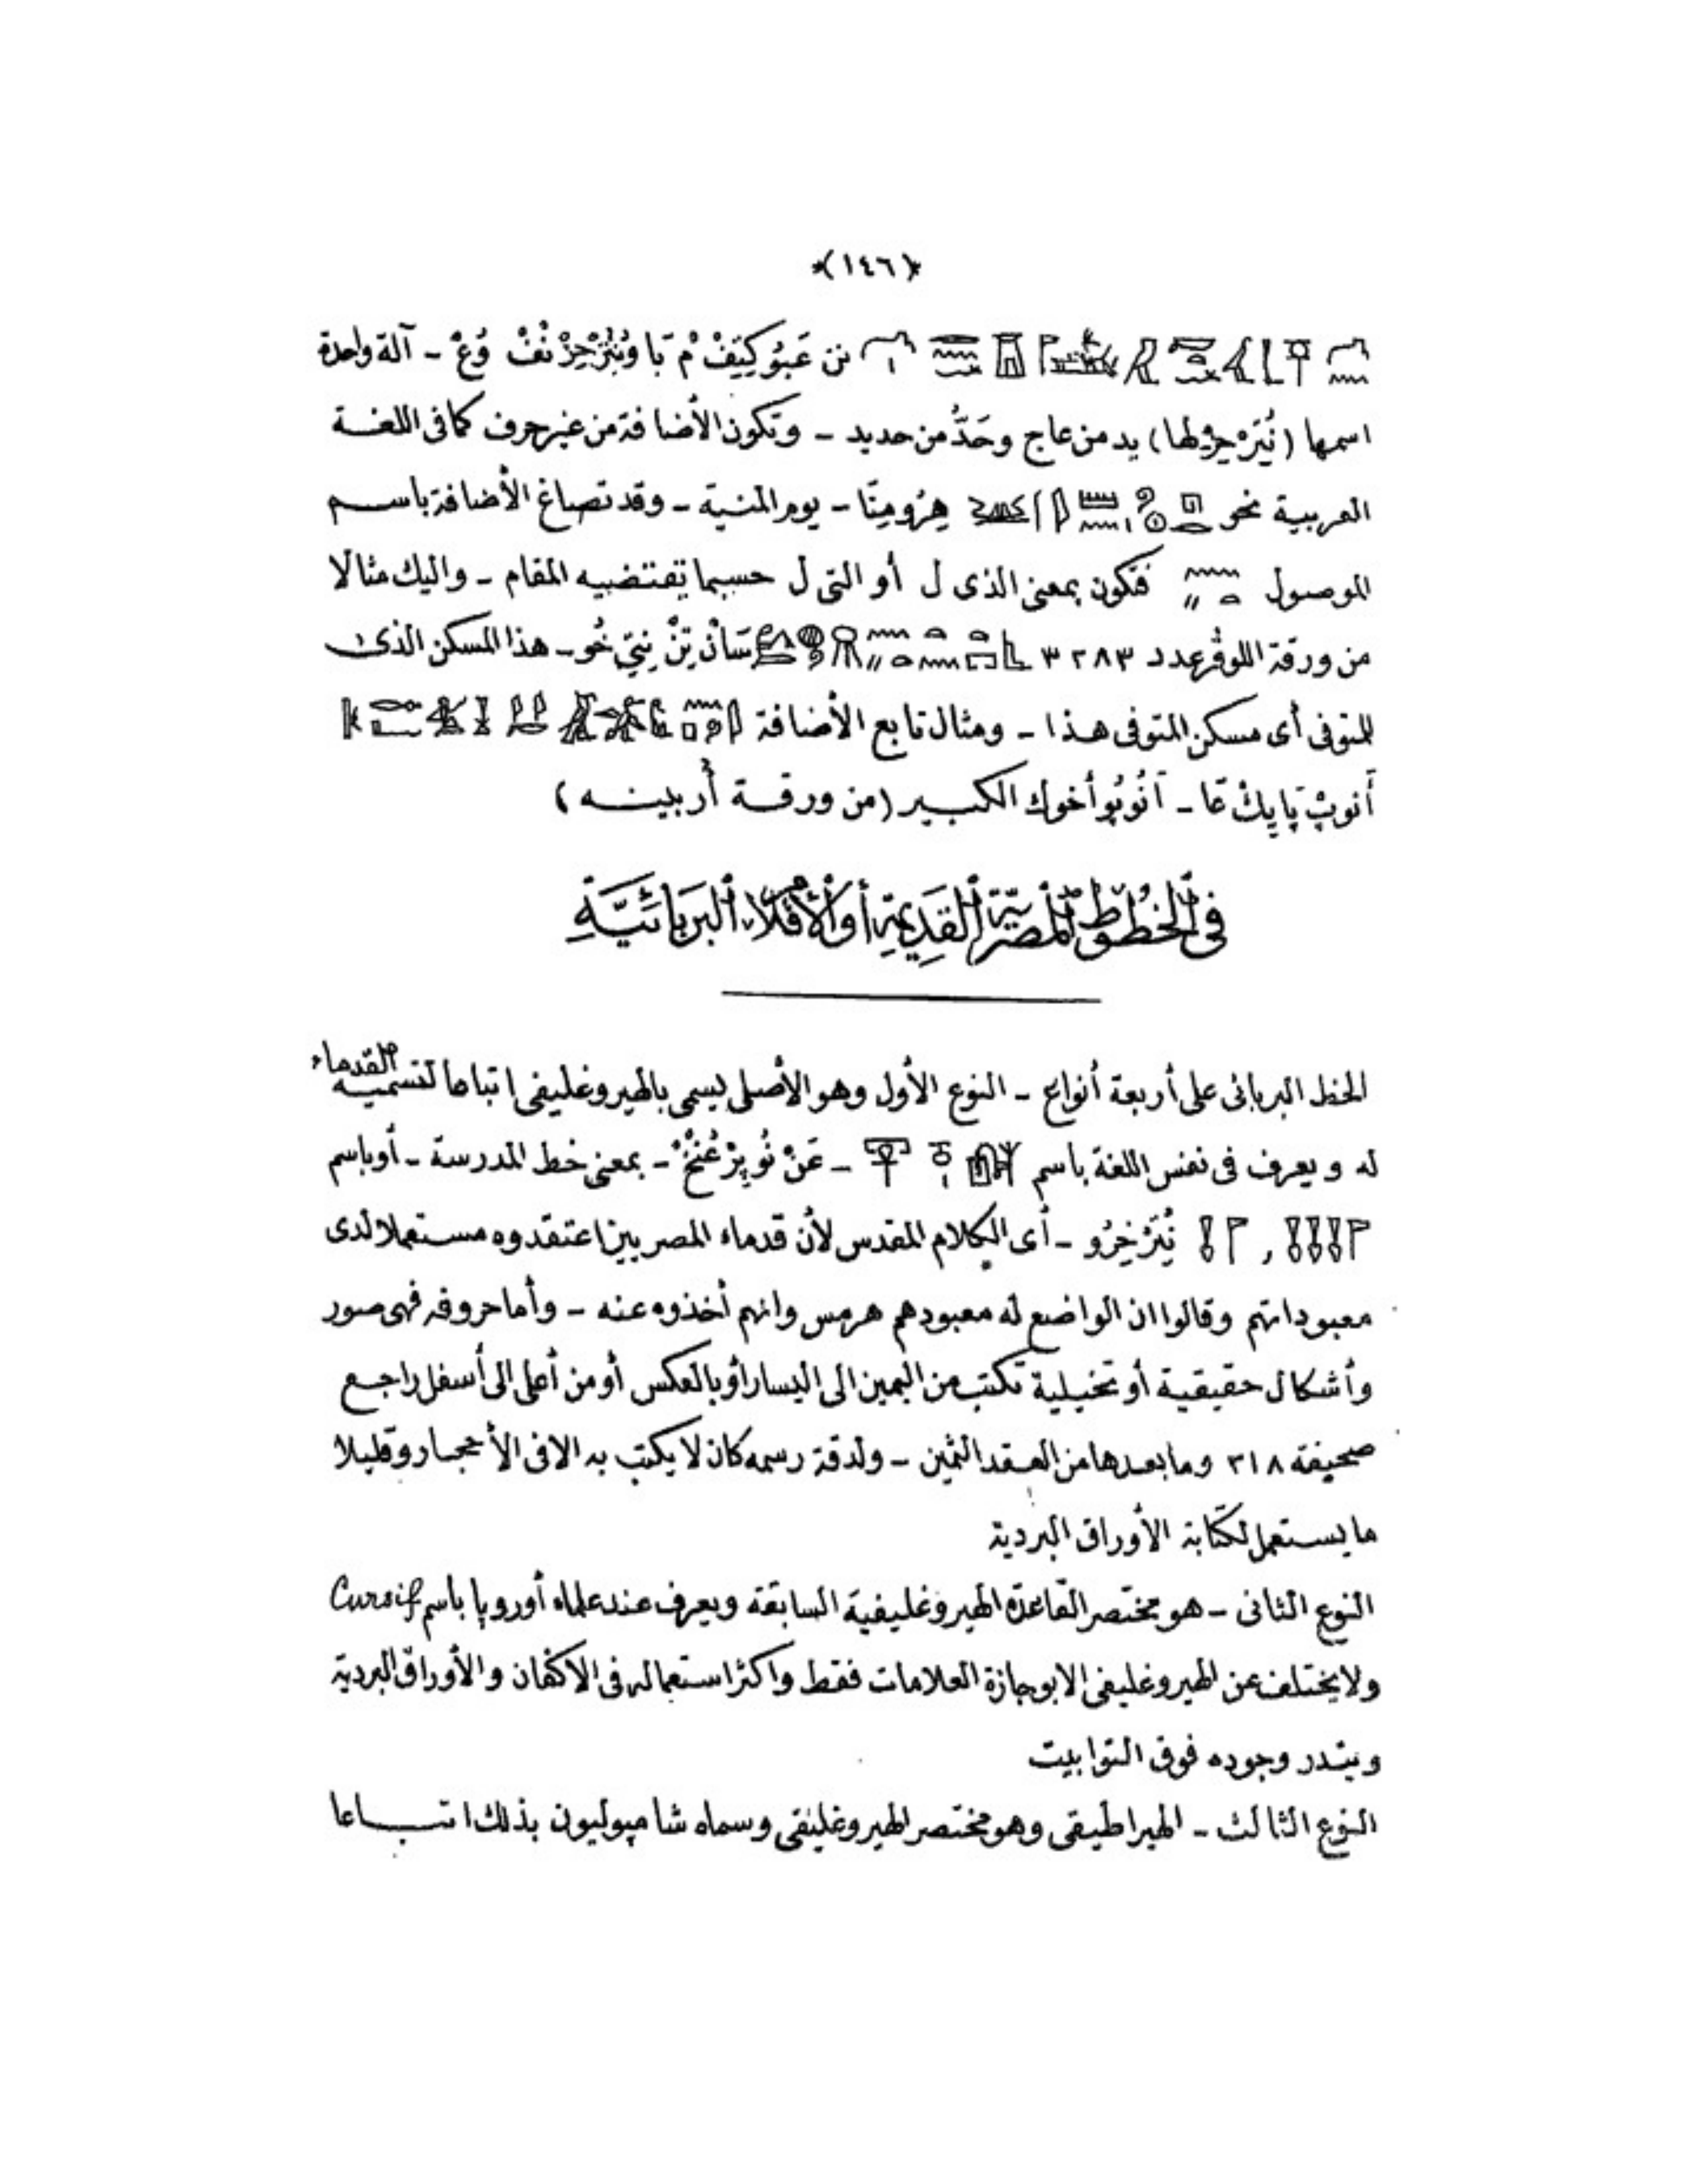 ﴿١٤٦﴾
نن عَبُو كِيَفْ مْ بَا وُ نْفْ وَعْ - آلة واحدة
اسمها (لها) يد من عاج وحَدُّ من حديد - وتكون الأضافة من غير حرف كما فى اللغة
العربية نحو هِرُومِنَّا - يوم المنية - وقد تصاغ الأضافة باسم
الموصول فتكون بمعنى الذى ل أو التى ل حسبما تقتضيه المقام - واليك مثالا
من ورقة اللوڤر عدد ٣٢٨٣ سَانْ تِنْ نِتِى خُو - هذا المسكن الذى
للمتوفى أى مسكن المتوفى هذا - ومثال تابع الأضافة
أَنوپْ پَايِكْ عَا - آنُوپُو أخوك الكبير (من ورقة أُربينه)
فى الخُطُوطِ المصريَّةِ القَدِيمَةِ أو الأقلام البَربَائيَّةِ
الخط البربائى على أربعة أنواع - النوع الأول وهو الأصلى يسمى بالهيروغليفى اتباعا لتسمية القدماء
له ويعرف فى نفس اللغة باسم - عَنْ نُو پِرْ عُنْخْ - بمعنى خط المدرسة - أو باسم
, نُتَرْ خِرُو - أى الكلام المقدس لأن قدماء المصريين اعتقدوه مستعملا لدى
معبوداتهم وقالوا ان الواضع له معبودهم هرمس وانهم أخذوه عنه - وأما حروفه فهى صور
وأشكال حقيقية أو تخيلية تكتب من اليمين الى اليسار أو بالعكس أو من أعلى الى أسفل راجع
صحيفة ٣١٨ وما بعدها من العقد الثمين - ولدقة رسمه كان لا يكتب به الا فى الأحجار وقليلا
ما يستعمل لكتابة الأوراق البردية
النوع الثانى - هو مختصر القاعدة الهيروغليفية السابقة ويعرف عند علماء أوروپا باسم Cursif
ولا يختلف عن الهيروغليفى الا بوجازة العلامات فقط واكثر استعماله فى الاكفان والأوراق البردية
ويندر وجوده فوق التوابيت
النوع الثالث - الهيراطيقى وهو مختصر الهيروغليفى وسماه شامپوليون بذلك اتباعا